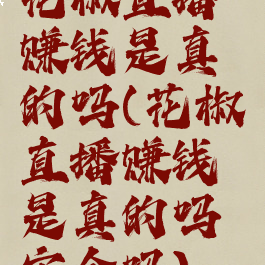 花椒直播
赚钱是真
的吗(花椒
直播赚钱
是真的吗
安全吗)